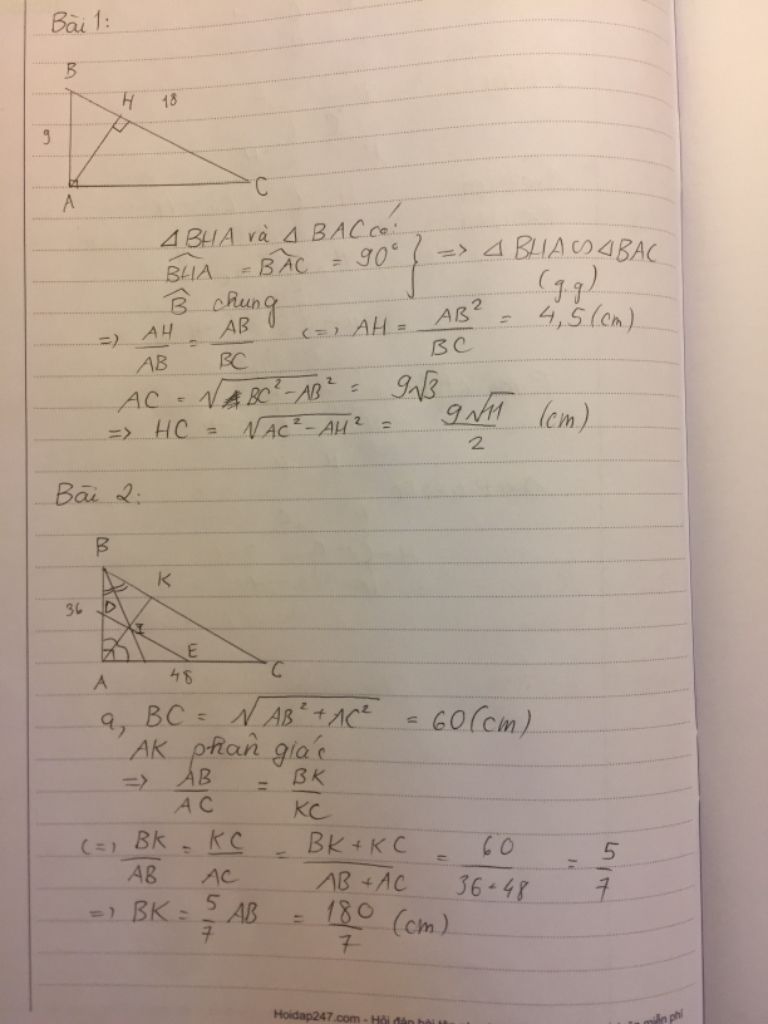 Bài 1:
B
H 18
9
A
C
Δ BHA và Δ BAC có:
BHA = BAC = 90° } => Δ BHA ∽ Δ BAC
B chung (g.g)
=> AH/AB = AB/BC <=> AH = AB²/BC = 4,5 (cm)
AC = √BC² - AB² = 9√3
=> HC = √AC² - AH² = 9√11/2 (cm)
Bài 2:
B
K
36 D
I
E
A 48 C
a, BC = √AB² + AC² = 60 (cm)
AK phân giác
=> AB/AC = BK/KC
<=> BK/AB = KC/AC = BK + KC/AB + AC = 60/36+48 = 5/7
=> BK = 5/7 AB = 180/7 (cm)
Hoidap247.com - Hỏi đáp bài miễn phí